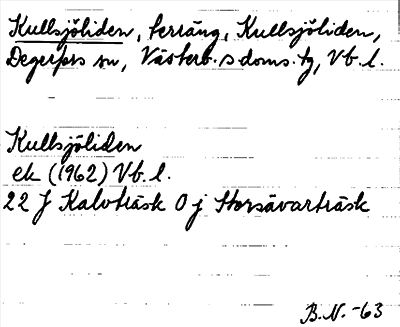 Kullsjöliden, terräng, Kullsjöliden,
Degerfors sn, Västerb. s doms. tg, Vb. l.
Kullsjöliden
ek (1962) Vb. l.
22 J Kalvträsk 0 j Storsävarträsk
B.N. -63